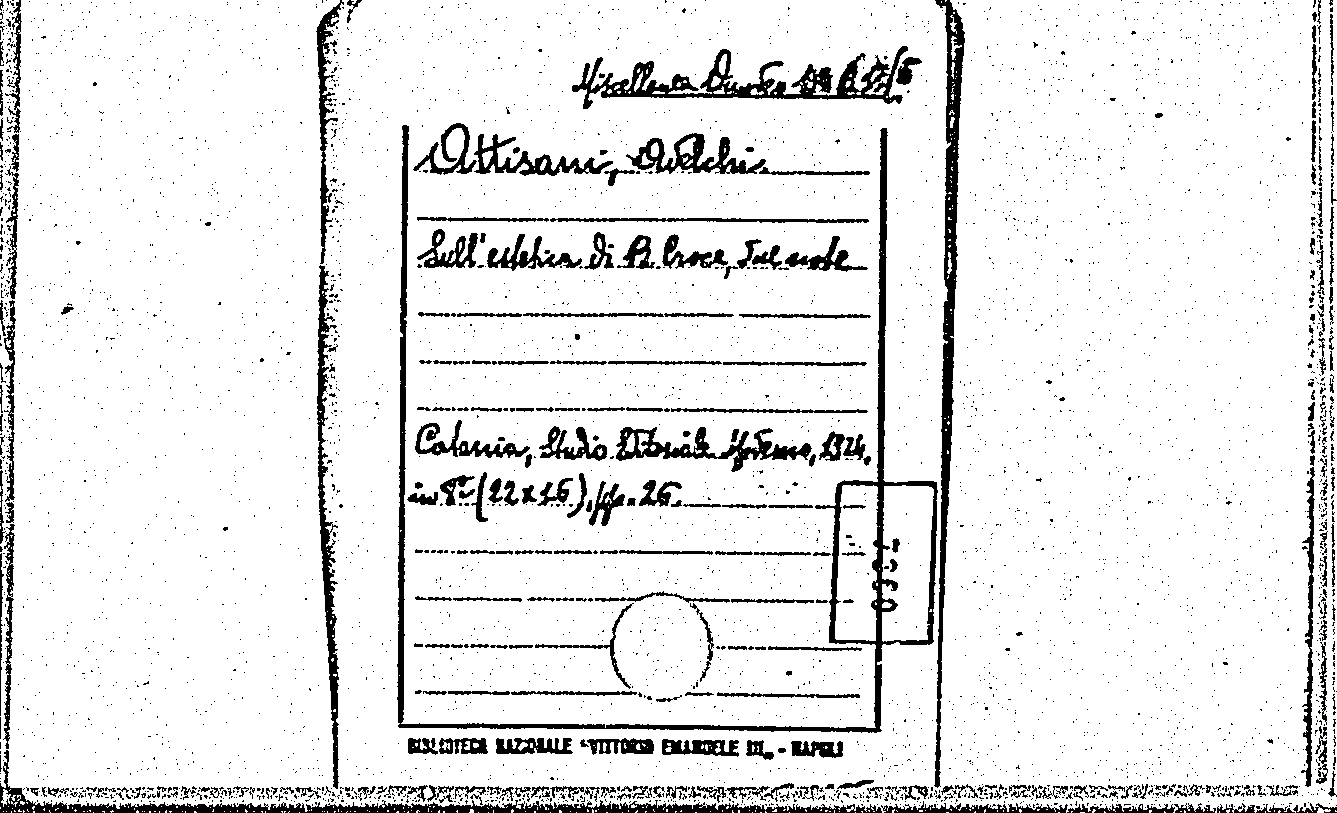 Miscellanea Dumas B
Attisani, Adelchi.
Sull'estetica di B. Croce, due note
Catania, Studio Editoriale Moderno, 1924.
in 8° (22x16), pp. 26.
0381
BIBLIOTECA NAZIONALE "VITTORIO EMANUELE III" - NAPOLI